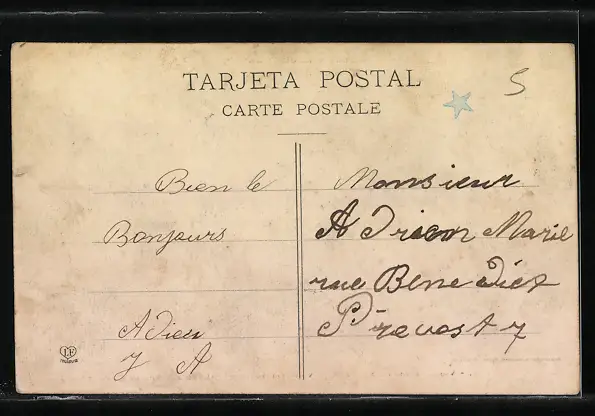 TARJETA POSTAL
CARTE POSTALE
5
Bien le
Bonjours
Adieu
y A
Monsieur
Adrien Marie
rue Benedict
Prevost 7